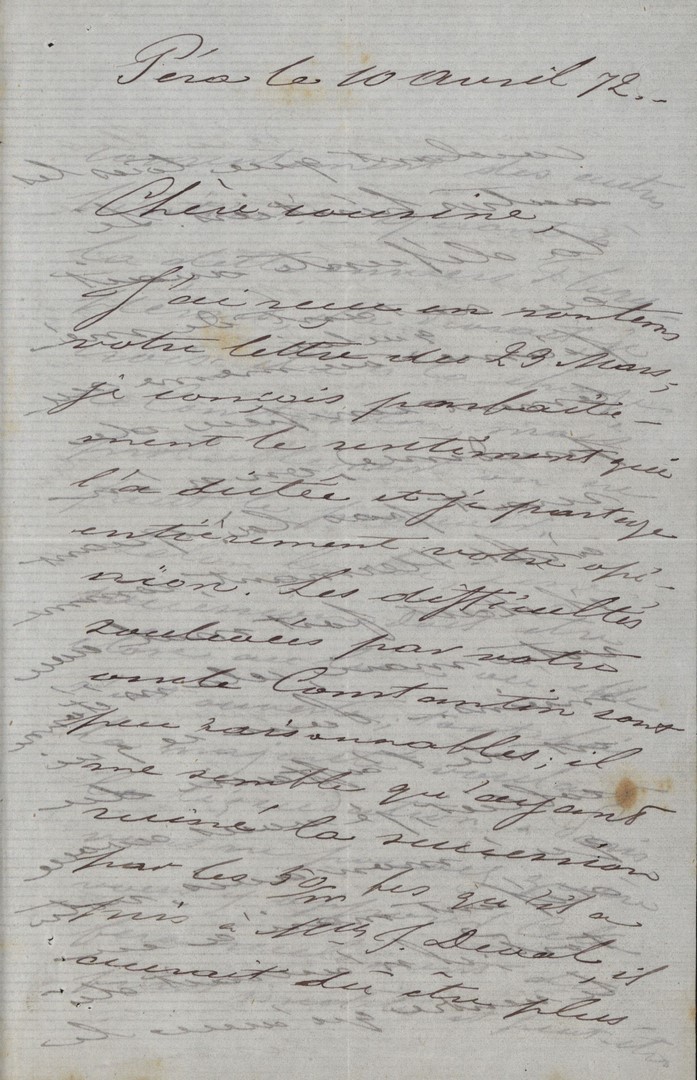 Péra le 10 avril 72.-
Chère cousine,
J'ai reçu en son tems
votre lettre du 23 Mars,
je conçois parfaite-
ment le sentiment qui
l'a dictée et je partage
entièrement votre opi-
nion. Les difficultés
soulevées par votre
oncle Constantin sont
peu raisonnables; il
me semble qu'ayant
ruiné la succession
par les 50/m qu'il a
pris à J. Deval, il
aurait dû être plus